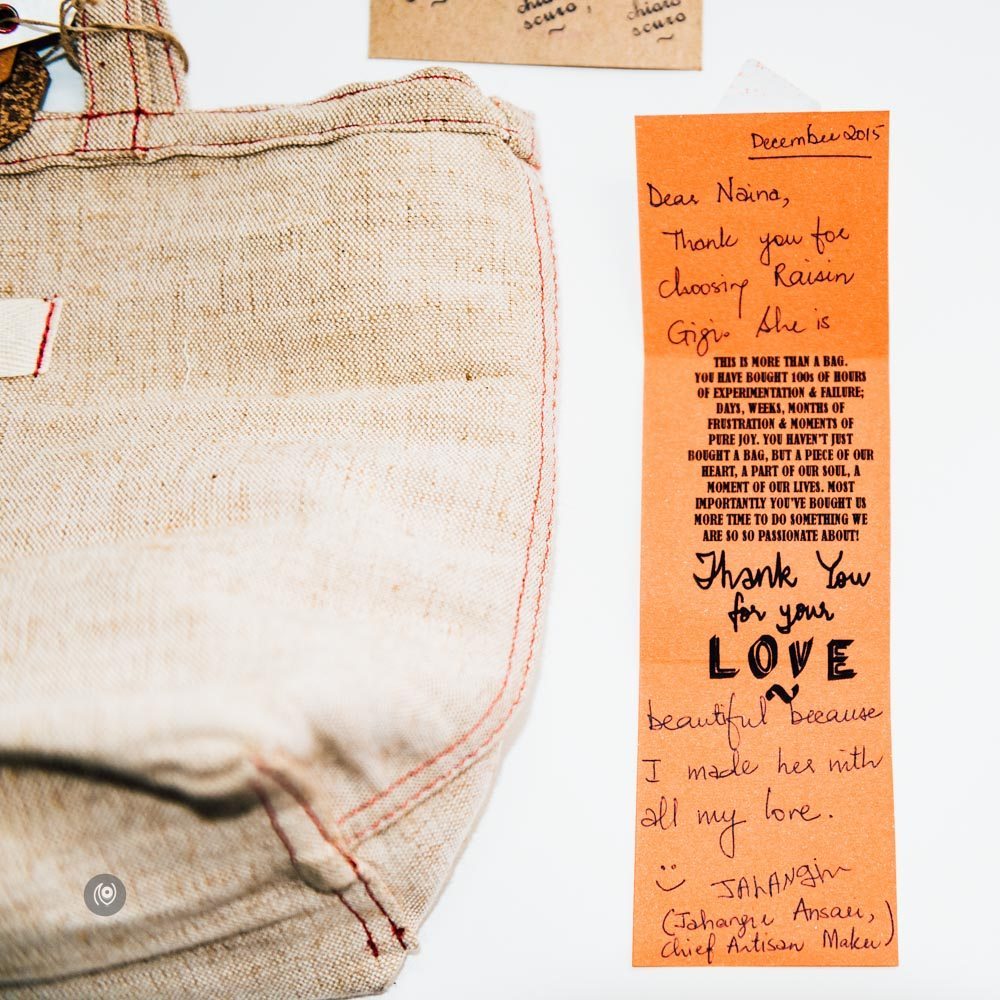 chiaro
scuro,
~
chiaro
scuro
~
December 2015
Dear Naina,
Thank you for
choosing Raisin
Gigi. She is
THIS IS MORE THAN A BAG.
YOU HAVE BOUGHT 100s OF HOURS
OF EXPERIMENTATION & FAILURE;
DAYS, WEEKS, MONTHS OF
FRUSTRATION & MOMENTS OF
PURE JOY. YOU HAVEN'T JUST
BOUGHT A BAG, BUT A PIECE OF OUR
HEART, A PART OF OUR SOUL, A
MOMENT OF OUR LIVES. MOST
IMPORTANTLY YOU'VE BOUGHT US
MORE TIME TO DO SOMETHING WE
ARE SO SO PASSIONATE ABOUT!
Thank You
for your
LOVE
~
beautiful because
I made her with
all my love.
:) JAHANgir
(Jahangir Ansari,
Chief Artisan Maker)